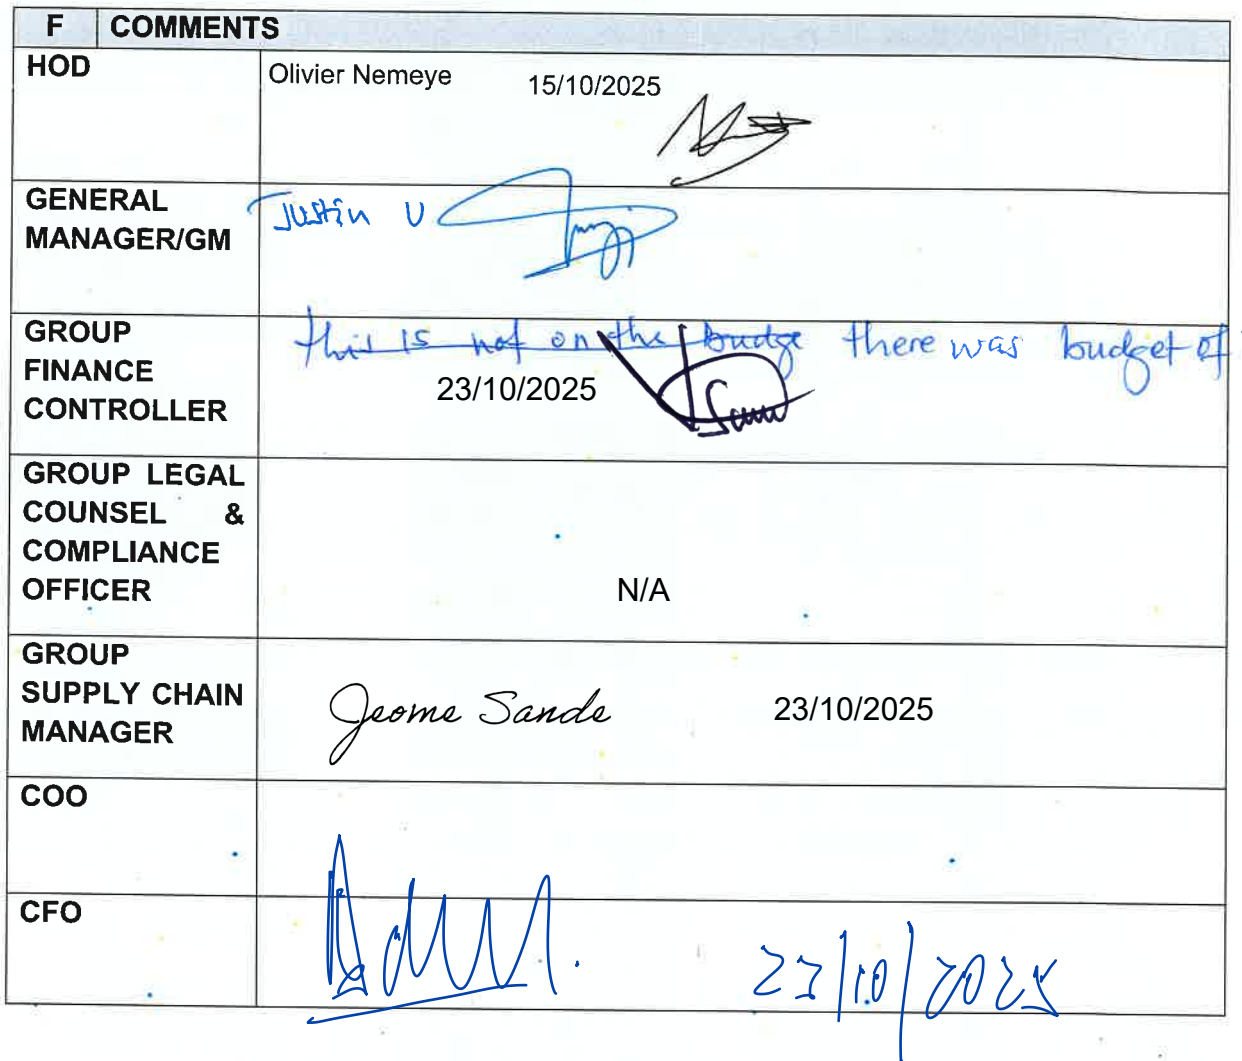 F COMMENTS
HOD
Olivier Nemeye 15/10/2025
GENERAL
MANAGER/GM
Justin U
GROUP
FINANCE
CONTROLLER
this is not on the budge there was budget of
23/10/2025
GROUP LEGAL
COUNSEL &
COMPLIANCE
OFFICER
N/A
GROUP
SUPPLY CHAIN
MANAGER
Jeome Sande 23/10/2025
COO
CFO
23/10/2025